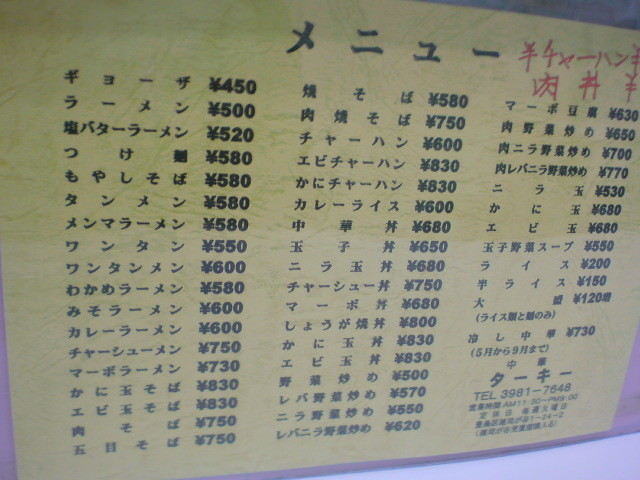 メニュー
半チャーハン¥
肉丼 ¥
ギョーザ ¥450
ラーメン ¥500
塩バターラーメン ¥520
つけ麺 ¥580
もやしそば ¥580
タンメン ¥580
メンマラーメン ¥580
ワンタン ¥550
ワンタンメン ¥600
わかめラーメン ¥580
みそラーメン ¥600
カレーラーメン ¥600
チャーシューメン ¥750
マーボラーメン ¥730
かに玉そば ¥830
エビ玉そば ¥830
肉そば ¥750
五目そば ¥750
焼そば ¥580
肉焼そば ¥750
チャーハン ¥600
エビチャーハン ¥830
かにチャーハン ¥830
カレーライス ¥600
中華丼 ¥680
玉子丼 ¥650
ニラ玉丼 ¥680
チャーシュー丼 ¥750
マーボ丼 ¥680
しょうが焼丼 ¥800
かに玉丼 ¥830
エビ玉丼 ¥830
野菜炒め ¥500
レバ野菜炒め ¥570
ニラ野菜炒め ¥550
レバニラ野菜炒め ¥620
マーボ豆腐 ¥630
肉野菜炒め ¥650
肉ニラ野菜炒め ¥700
肉レバニラ野菜炒め ¥770
ニラ玉 ¥530
かに玉 ¥680
エビ玉 ¥680
玉子野菜スープ ¥550
ライス ¥200
半ライス ¥150
大盛 ¥120増
(ライス類と麺のみ)
冷し中華 ¥730
(5月から9月まで)
中華
ターキー
TEL 3981-7648
営業時間 AM11:30~PM9:00
定休日 毎週火曜日
豊島区雑司が谷1-24-2